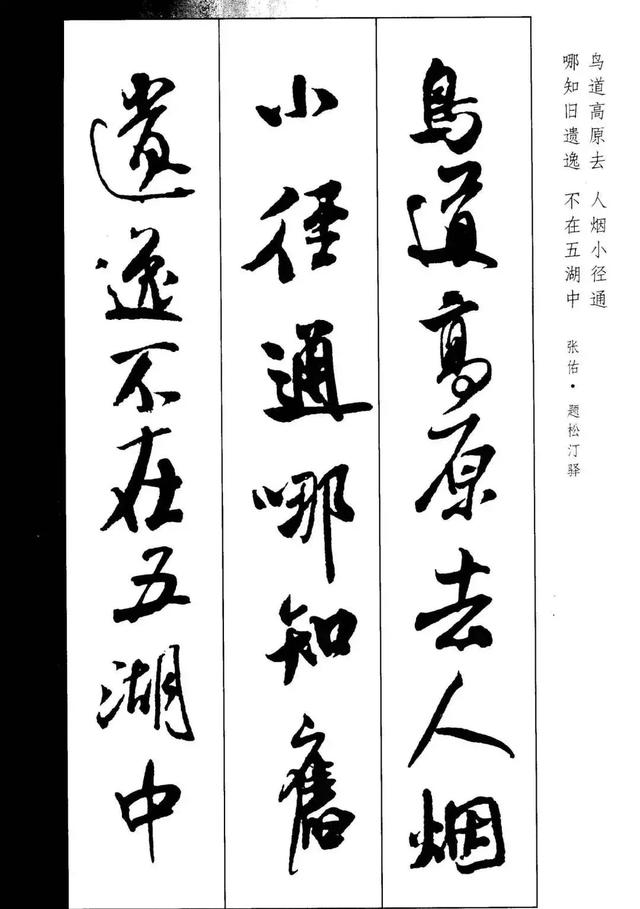 鸟道高原去 人烟小径通
哪知旧遗逸 不在五湖中
张佑·题松汀驿
鳥道高原去人烟
小径通哪知舊
遺逸不在五湖中